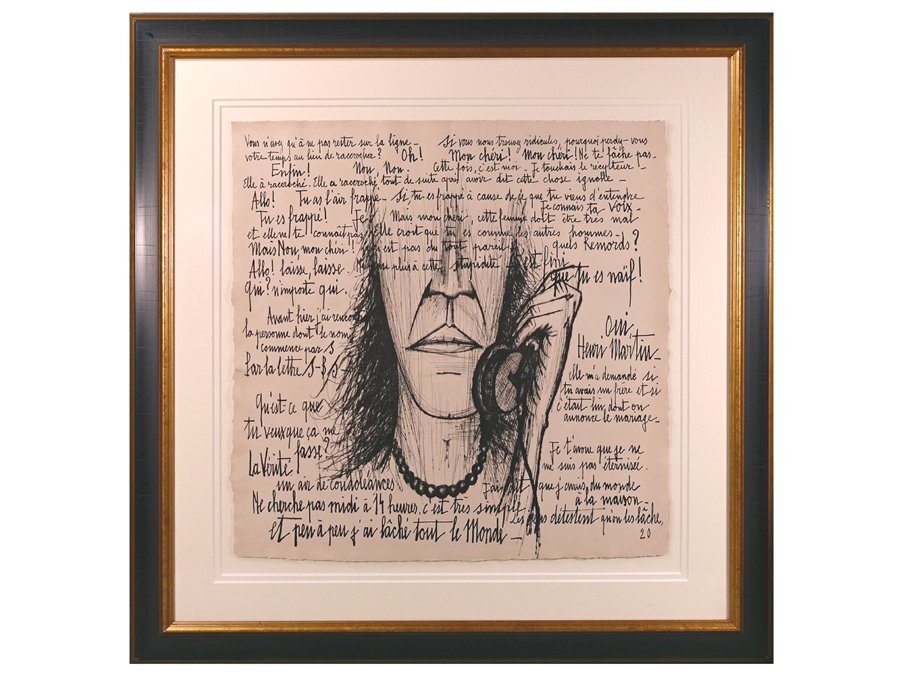 Vous n'avez qu'à ne pas rester sur la ligne _ Si vous nous trouvez ridicules, pourquoi perdez-vous
votre temps au lieu de raccrocher? Oh! Mon chéri! Mon chéri! Ne te fâche pas.
Enfin! Non, Non. Cette fois, c'est moi. Je touchais le récepteur!
Elle a raccroché. Elle a raccroché tout de suite après avoir dit cette chose ignoble _
Allo! Tu as l'air frappé _ Si tu es frappé à cause de ce que tu viens d'entendre
Je connais ta voix _
Tu es frappé! Je Mais mon chéri, cette femme doit être très mal
et elle ne te connait pas. Elle croit que tu es comme les autres hommes _
Mais Non, mon chéri! est pas du tout pareil. quels Remords?
Allo! laisse, laisse. plus à cette stupidité est fini
que tu es naïf!
qui? n'importe qui.
Avant hier j'ai rencontré
la personne dont le nom
commence par S
Par la lettre S-B.S _
oui
Henri Martin _
elle m'a demandé si
tu avais un frère et si
c'était lui dont on
annonce le mariage _
Qu'est-ce que
tu veux que ça me
fasse?
La Vérité
un air de condoléances
Je t'avoue que je ne
me suis pas éternisée.
J'ai dit que j'avais du monde
à la maison _
Ne cherche pas midi à 14 heures, c'est très simple
Les gens détestent qu'on les lâche,
et peu à peu j'ai lâché tout le Monde _
20